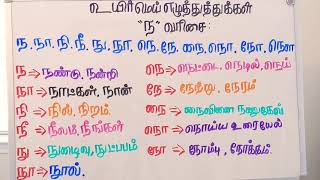 உயிர்மெய் எழுத்துத்துக்கள்
"ந" வரிசை:
ந, நா, நி, நீ, நு, நூ, நெ, நே, நை, நொ, நோ, நௌ
ந ⇒ நண்டு, நன்றி
நா ⇒ நாட்கள், நான்
நி ⇒ நில், நிறம்.
நீ ⇒ நீலம், நீங்கள்
நு ⇒ நுழைவு, நுட்பம்
நூ ⇒ நூல்.
நெ ⇒ நெட்டை, நெடில், நெய்
நே ⇒ நேற்று, நேரம்
நை ⇒
நொ ⇒ நொய்ய உரையேல்
நோ ⇒ நோம்பு, நோக்கம்.